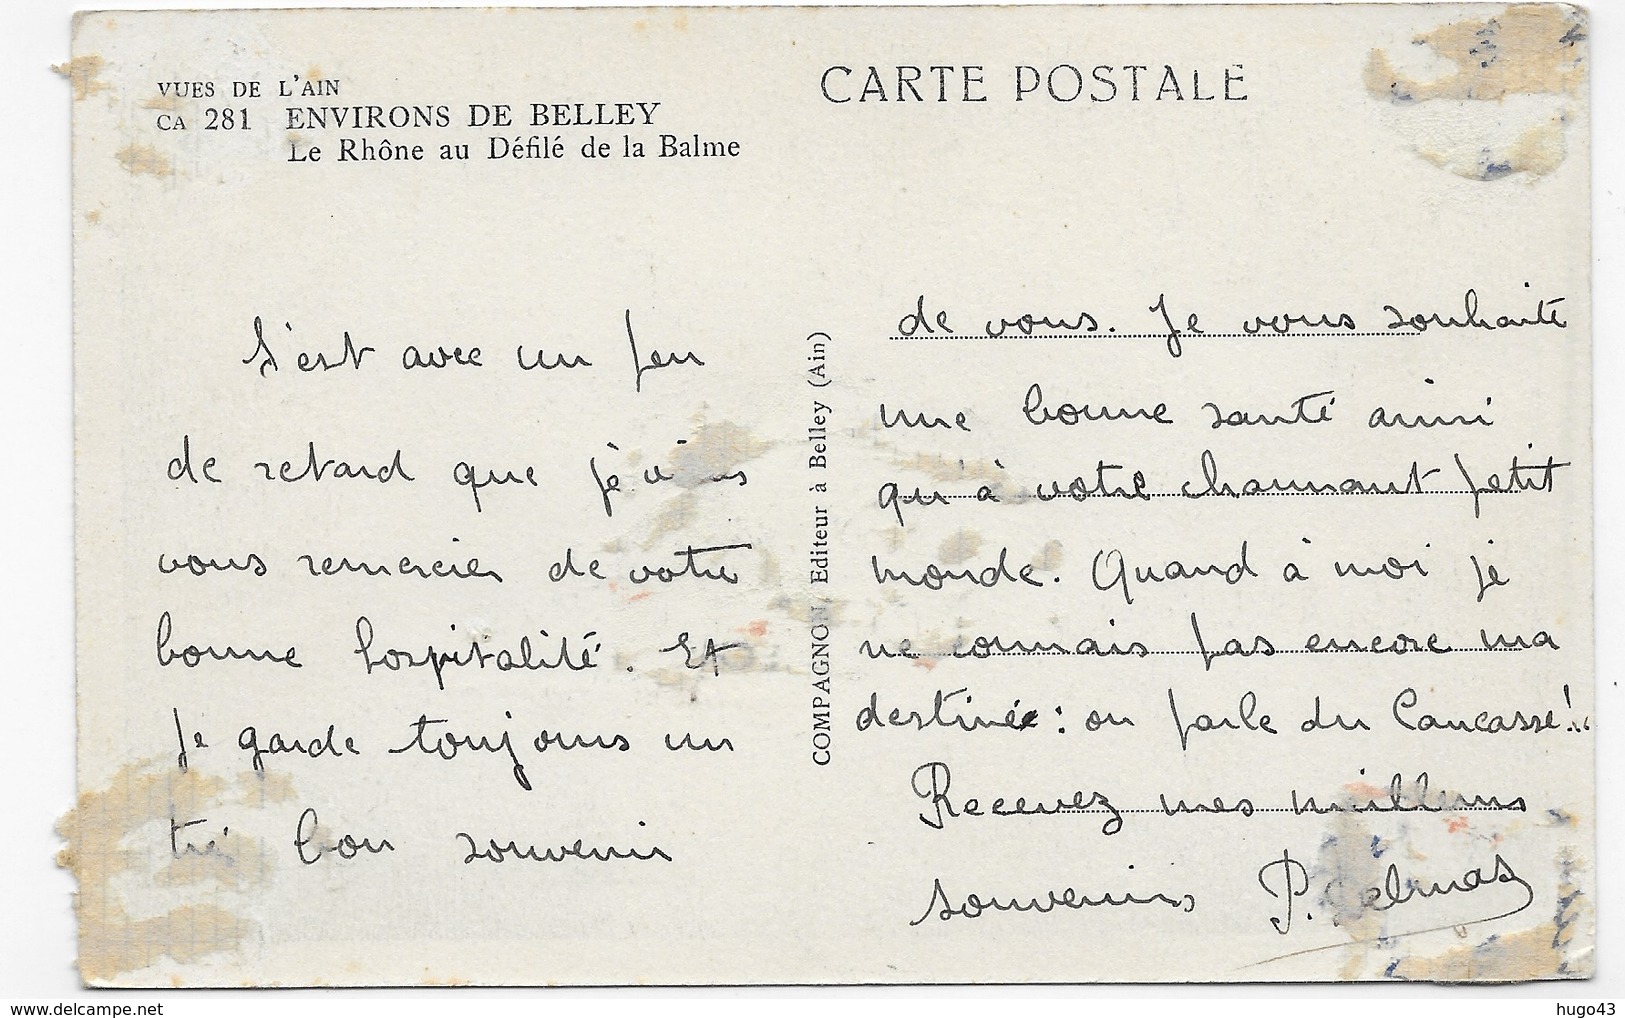 VUES DE L'AIN
CA 281 ENVIRONS DE BELLEY
Le Rhône au Défilé de la Balme
CARTE POSTALE
COMPAGNON, Editeur à Belley (Ain)
S'est avec un peu
de retard que je viens
vous remercier de votre
bonne hospitalité. Et
Je garde toujours un
très bon souvenir
de vous. Je vous souhaite
une bonne santé ainsi
qu'à votre charmant petit
monde. Quand à moi je
ne connais pas encore ma
destinée : on parle du Caucasse !..
Recevez mes meilleurs
souvenirs P.
www.delcampe.net
hugo43